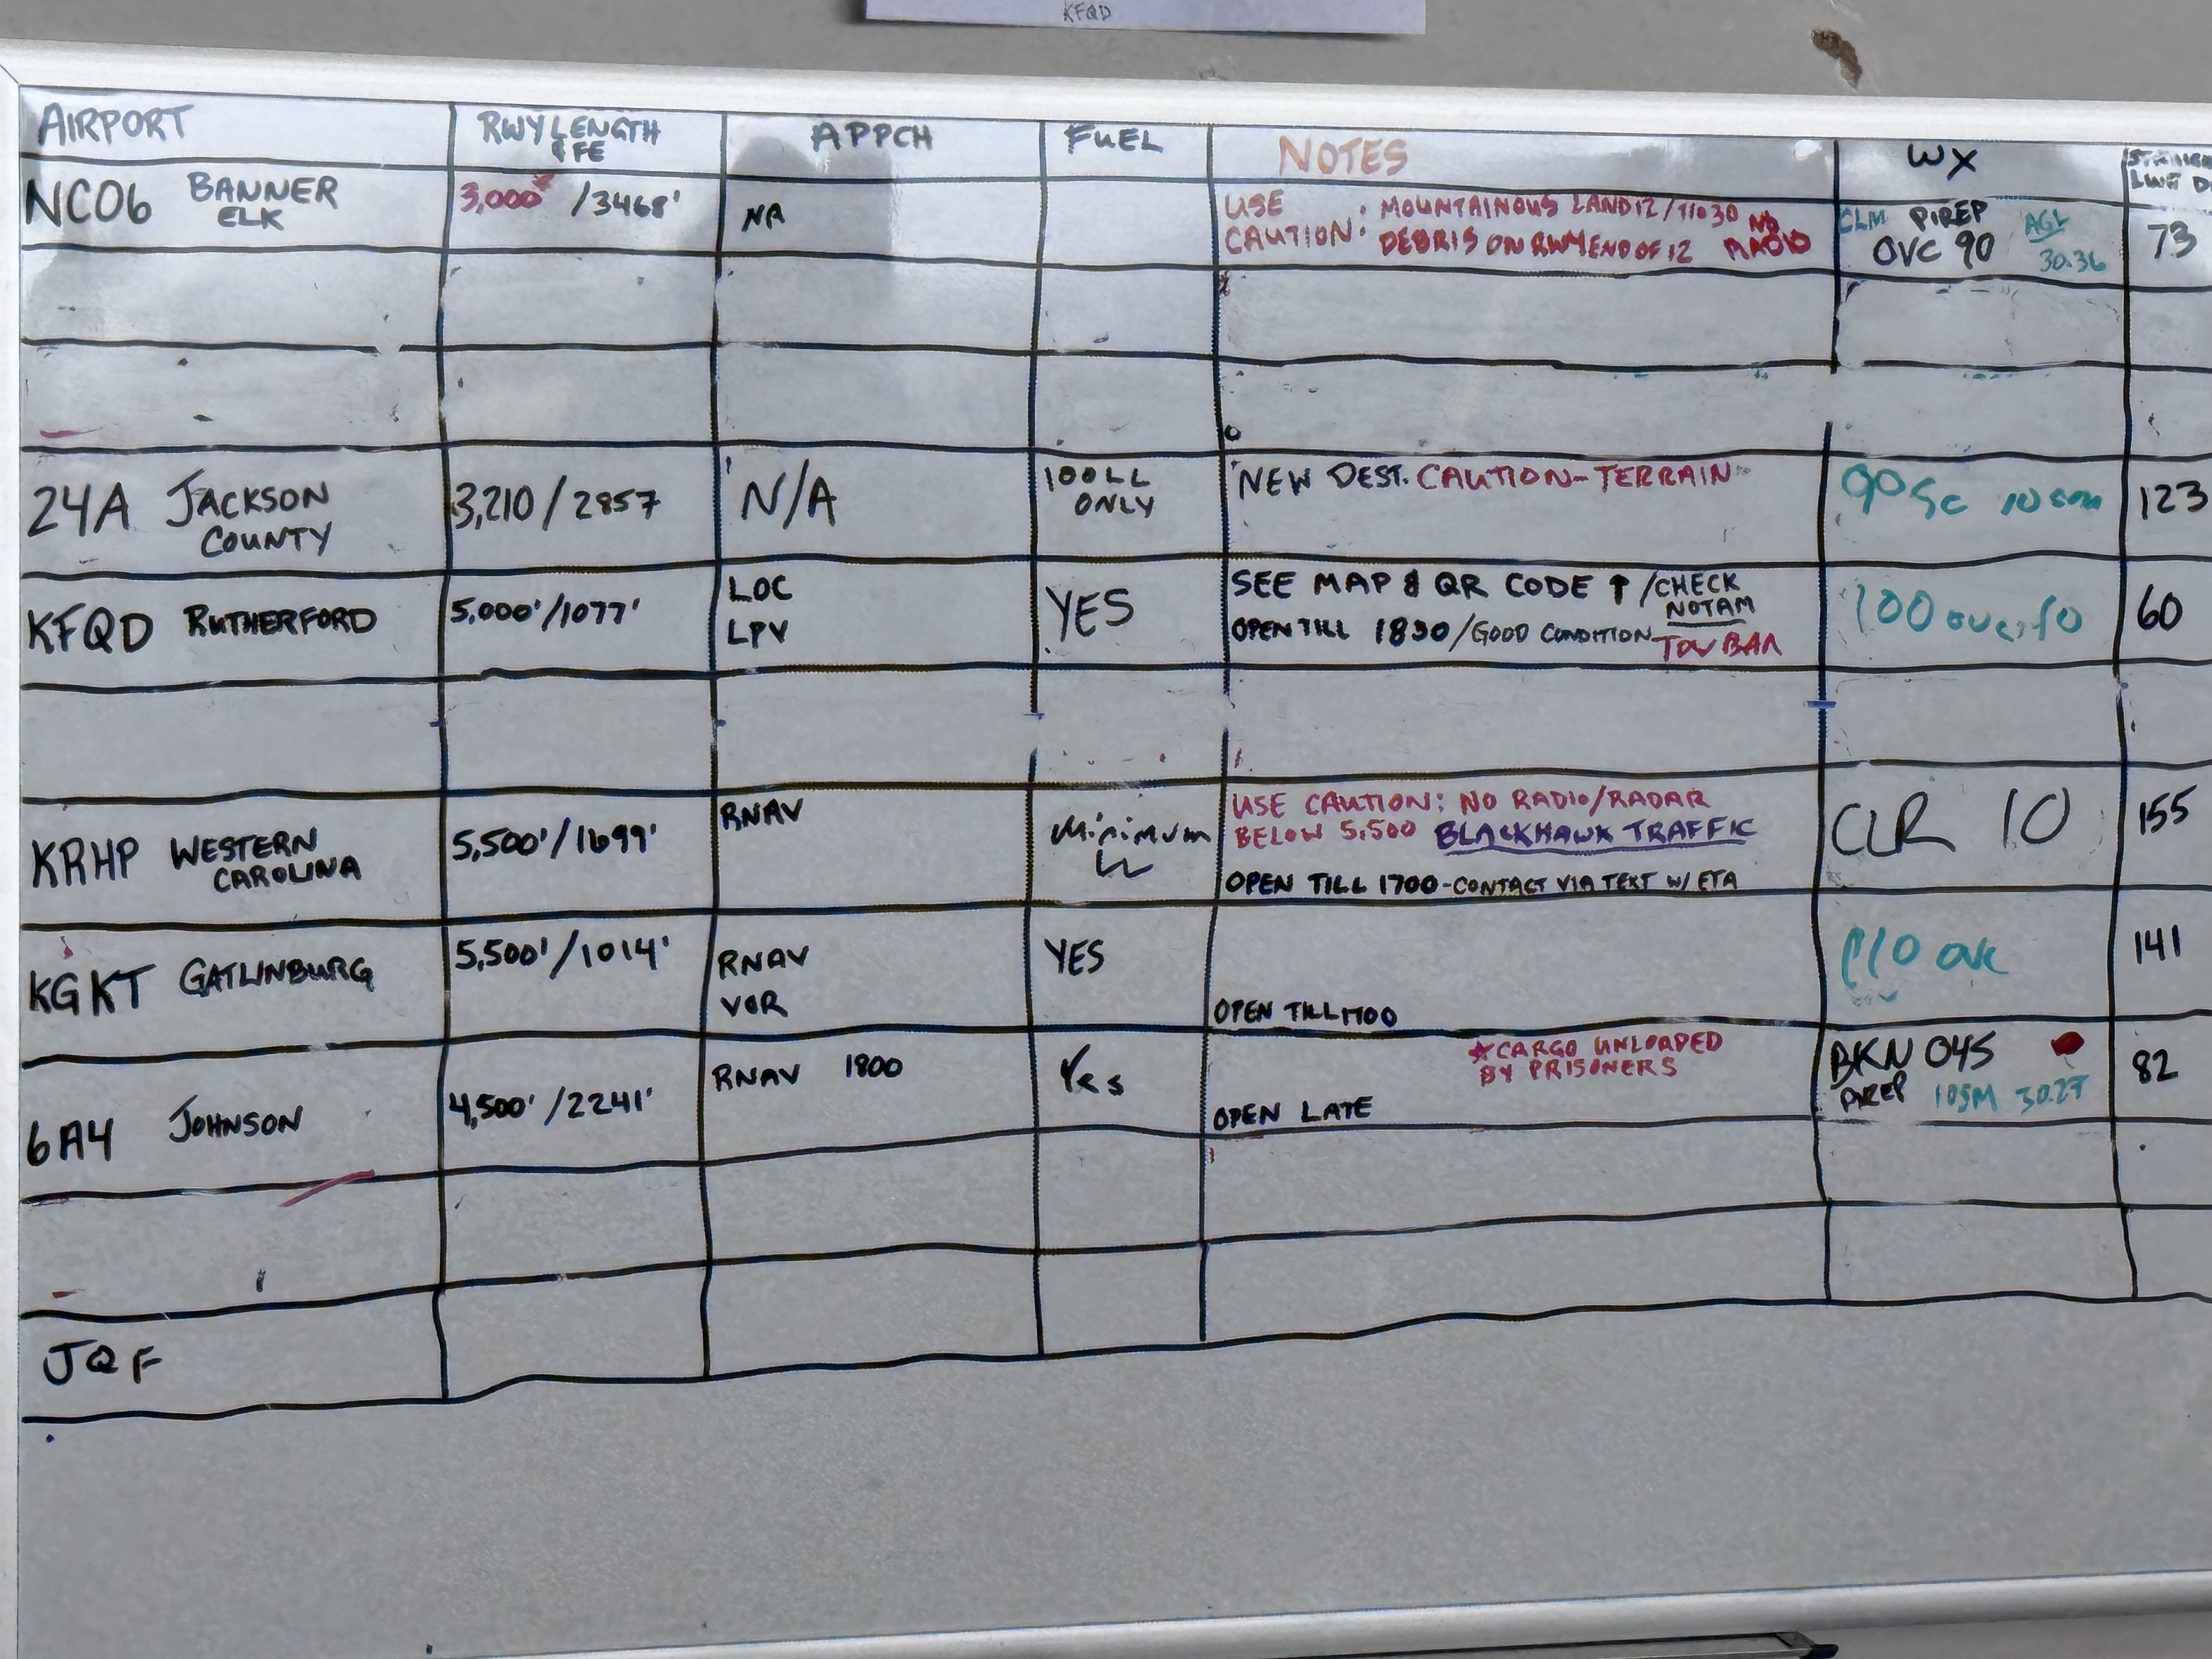 KFQD
AIRPORT
RWY LENGTH
& FE
APPCH
FUEL
NOTES
WX
NC06 BANNER
ELK
3,000' /3468'
NA
USE
CAUTION: MOUNTAINOUS LAND 12/T/O 30 NO
DEBRIS ON RWY END OF 12 RADIO
CLM PIREP AGL
OVC 90 30.36
73
24A JACKSON
COUNTY
3,210/2857
N/A
100LL
ONLY
NEW DEST. CAUTION-TERRAIN
90 Sc 10sm
123
KFQD RUTHERFORD
5,000'/1077'
LOC
LPV
YES
SEE MAP & QR CODE ↑ /CHECK
NOTAM
OPEN TILL 1830/GOOD CONDITION
TOW BAR
100
60
KRHP WESTERN
CAROLINA
5,500'/1699'
RNAV
Minimum
USE CAUTION: NO RADIO/RADAR
BELOW 5,500 BLACKHAWK TRAFFIC
OPEN TILL 1700-CONTACT VIA TEXT W/ ETA
CLR 10
155
KGKT GATLINBURG
5,500'/1014'
RNAV
VOR
YES
OPEN TILL 1700
141
6A4 JOHNSON
4,500'/2241'
RNAV 1800
Yes
*CARGO UNLOADED
BY PRISONERS
OPEN LATE
BKN 045
PIREP 10SM 30.27
82
JQF